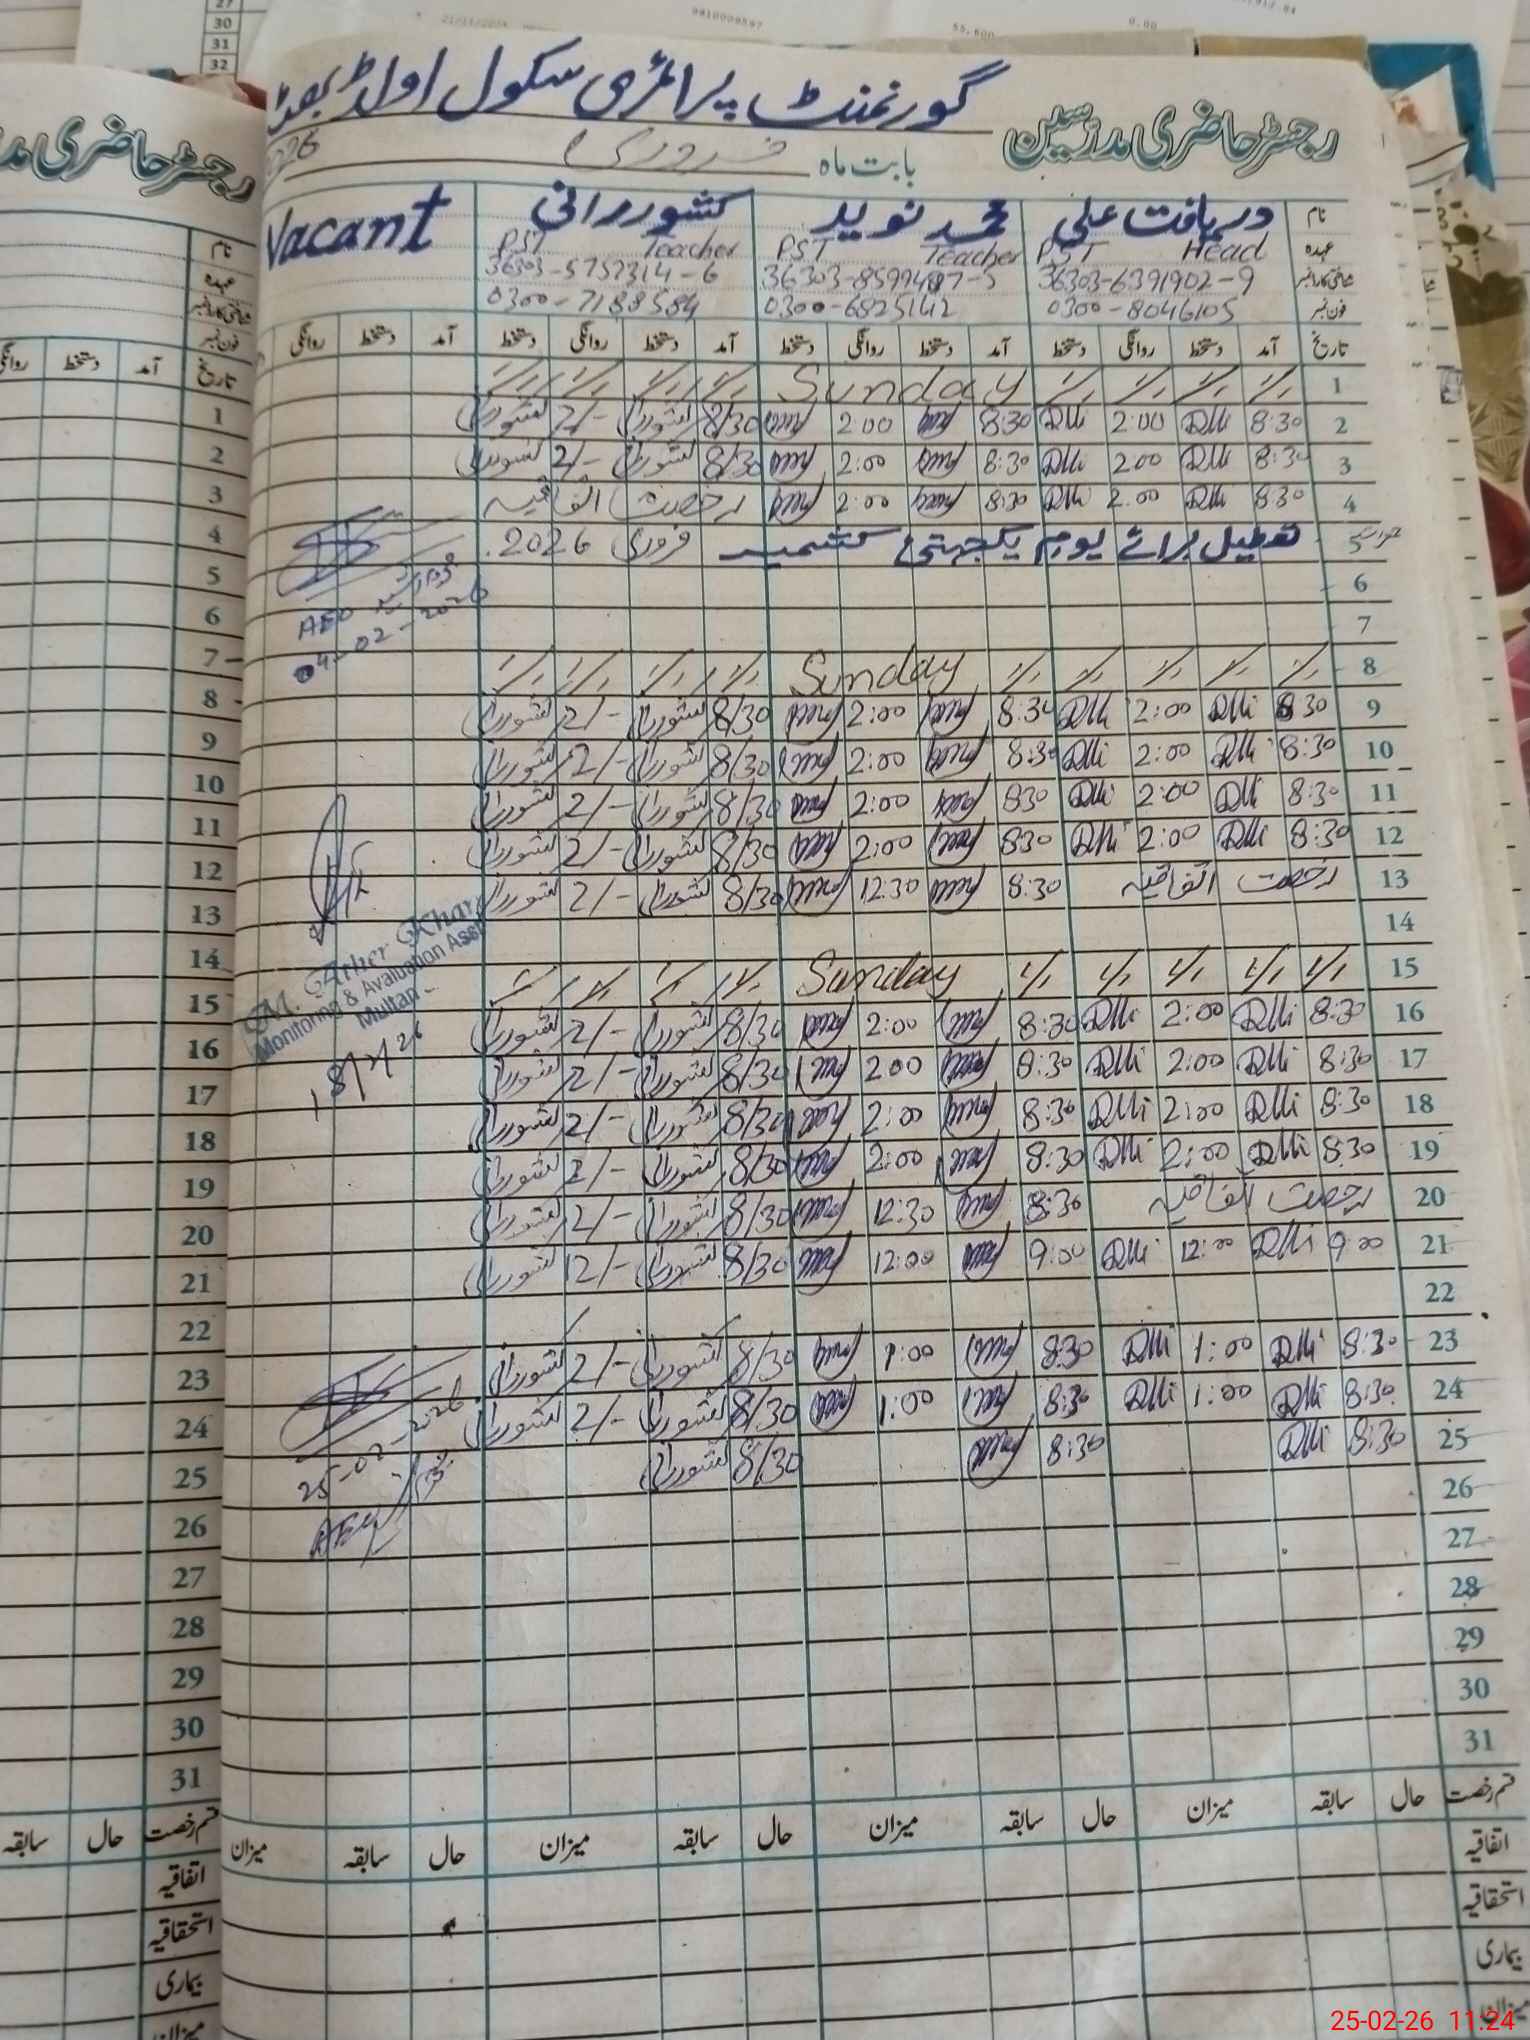 گورنمنٹ پرائمری سکول اولڈ بھٹہ
رجسٹر حاضری مدرسین
بابت ماہ فروری
نام دریافت علی محمد نوید کشور رانی Vacant
عہدہ PST Head PST Teacher PST Teacher
36303-6391902-9 36303-5757314-6
فون نمبر 0300-8046105 0300-6825142 0300-7188584
تاریخ آمد دستخط روانگی دستخط آمد دستخط روانگی دستخط آمد دستخط روانگی دستخط آمد دستخط روانگی
1 Sunday
2 8:30 2:00 8:30 2:00 8/30 کشور رانی 2/- کشور رانی
3 8:30 2:00 8:30 2:00 8/30 کشور رانی 2/- کشور رانی
4 8:30 2:00 8:30 2:00 رخصت اتفاقیہ
5 تعطیل برائے یوم یکجہتی کشمیر فروری 2026
AEO
04-02-2026
6
7
8 Sunday
9 8:30 2:00 8:30 2:00 8/30 کشور رانی 2/- کشور رانی
10 8:30 2:00 8:30 2:00 8/30 کشور رانی 2/- کشور رانی
11 8:30 2:00 830 2:00 8/30 کشور رانی 2/- کشور رانی
12 8:30 2:00 830 2:00 8/30 کشور رانی 2/- کشور رانی
13 رخصت اتفاقیہ 8:30 12:30 8/30 کشور رانی 2/- کشور رانی
14
15 Sunday
M. Ather Khan
Monitoring & Avaluation Asst
Multan
16 8:30 2:00 8:30 2:00 8/30 کشور رانی 2/- کشور رانی
17 8:30 2:00 8:30 2:00 8/30 کشور رانی 2/- کشور رانی
18 8:30 2:00 8:30 2:00 8/30 کشور رانی 2/- کشور رانی
19 8:30 2:00 8:30 2:00 8/30 کشور رانی 2/- کشور رانی
20 رخصت اتفاقیہ 8:30 12:30 8/30 کشور رانی 2/- کشور رانی
21 9:00 12:00 9:00 12:00 8/30 کشور رانی 12/- کشور رانی
22
23 8:30 1:00 8:30 1:00 8/30 کشور رانی 2/- کشور رانی
24 8:30 1:00 8:30 1:00 8/30 کشور رانی 2/- کشور رانی
25 8:30 8:30 8/30 کشور رانی
25-02-2026
26
27
28
29
30
31
قسم رخصت حال سابقہ میزان حال سابقہ میزان حال سابقہ میزان حال سابقہ میزان
اتفاقیہ
استحقاقیہ
بیماری
میزان
رجسٹر حاضری
نام
عہدہ
فون نمبر
تاریخ آمد دستخط
1
2
3
4
5
6
7
8
9
10
11
12
13
14
15
16
17
18
19
20
21
22
23
24
25
26
27
28
29
30
31
قسم رخصت حال سابقہ
اتفاقیہ
استحقاقیہ
بیماری
میزان
30
31
32
25-02-26 11:24